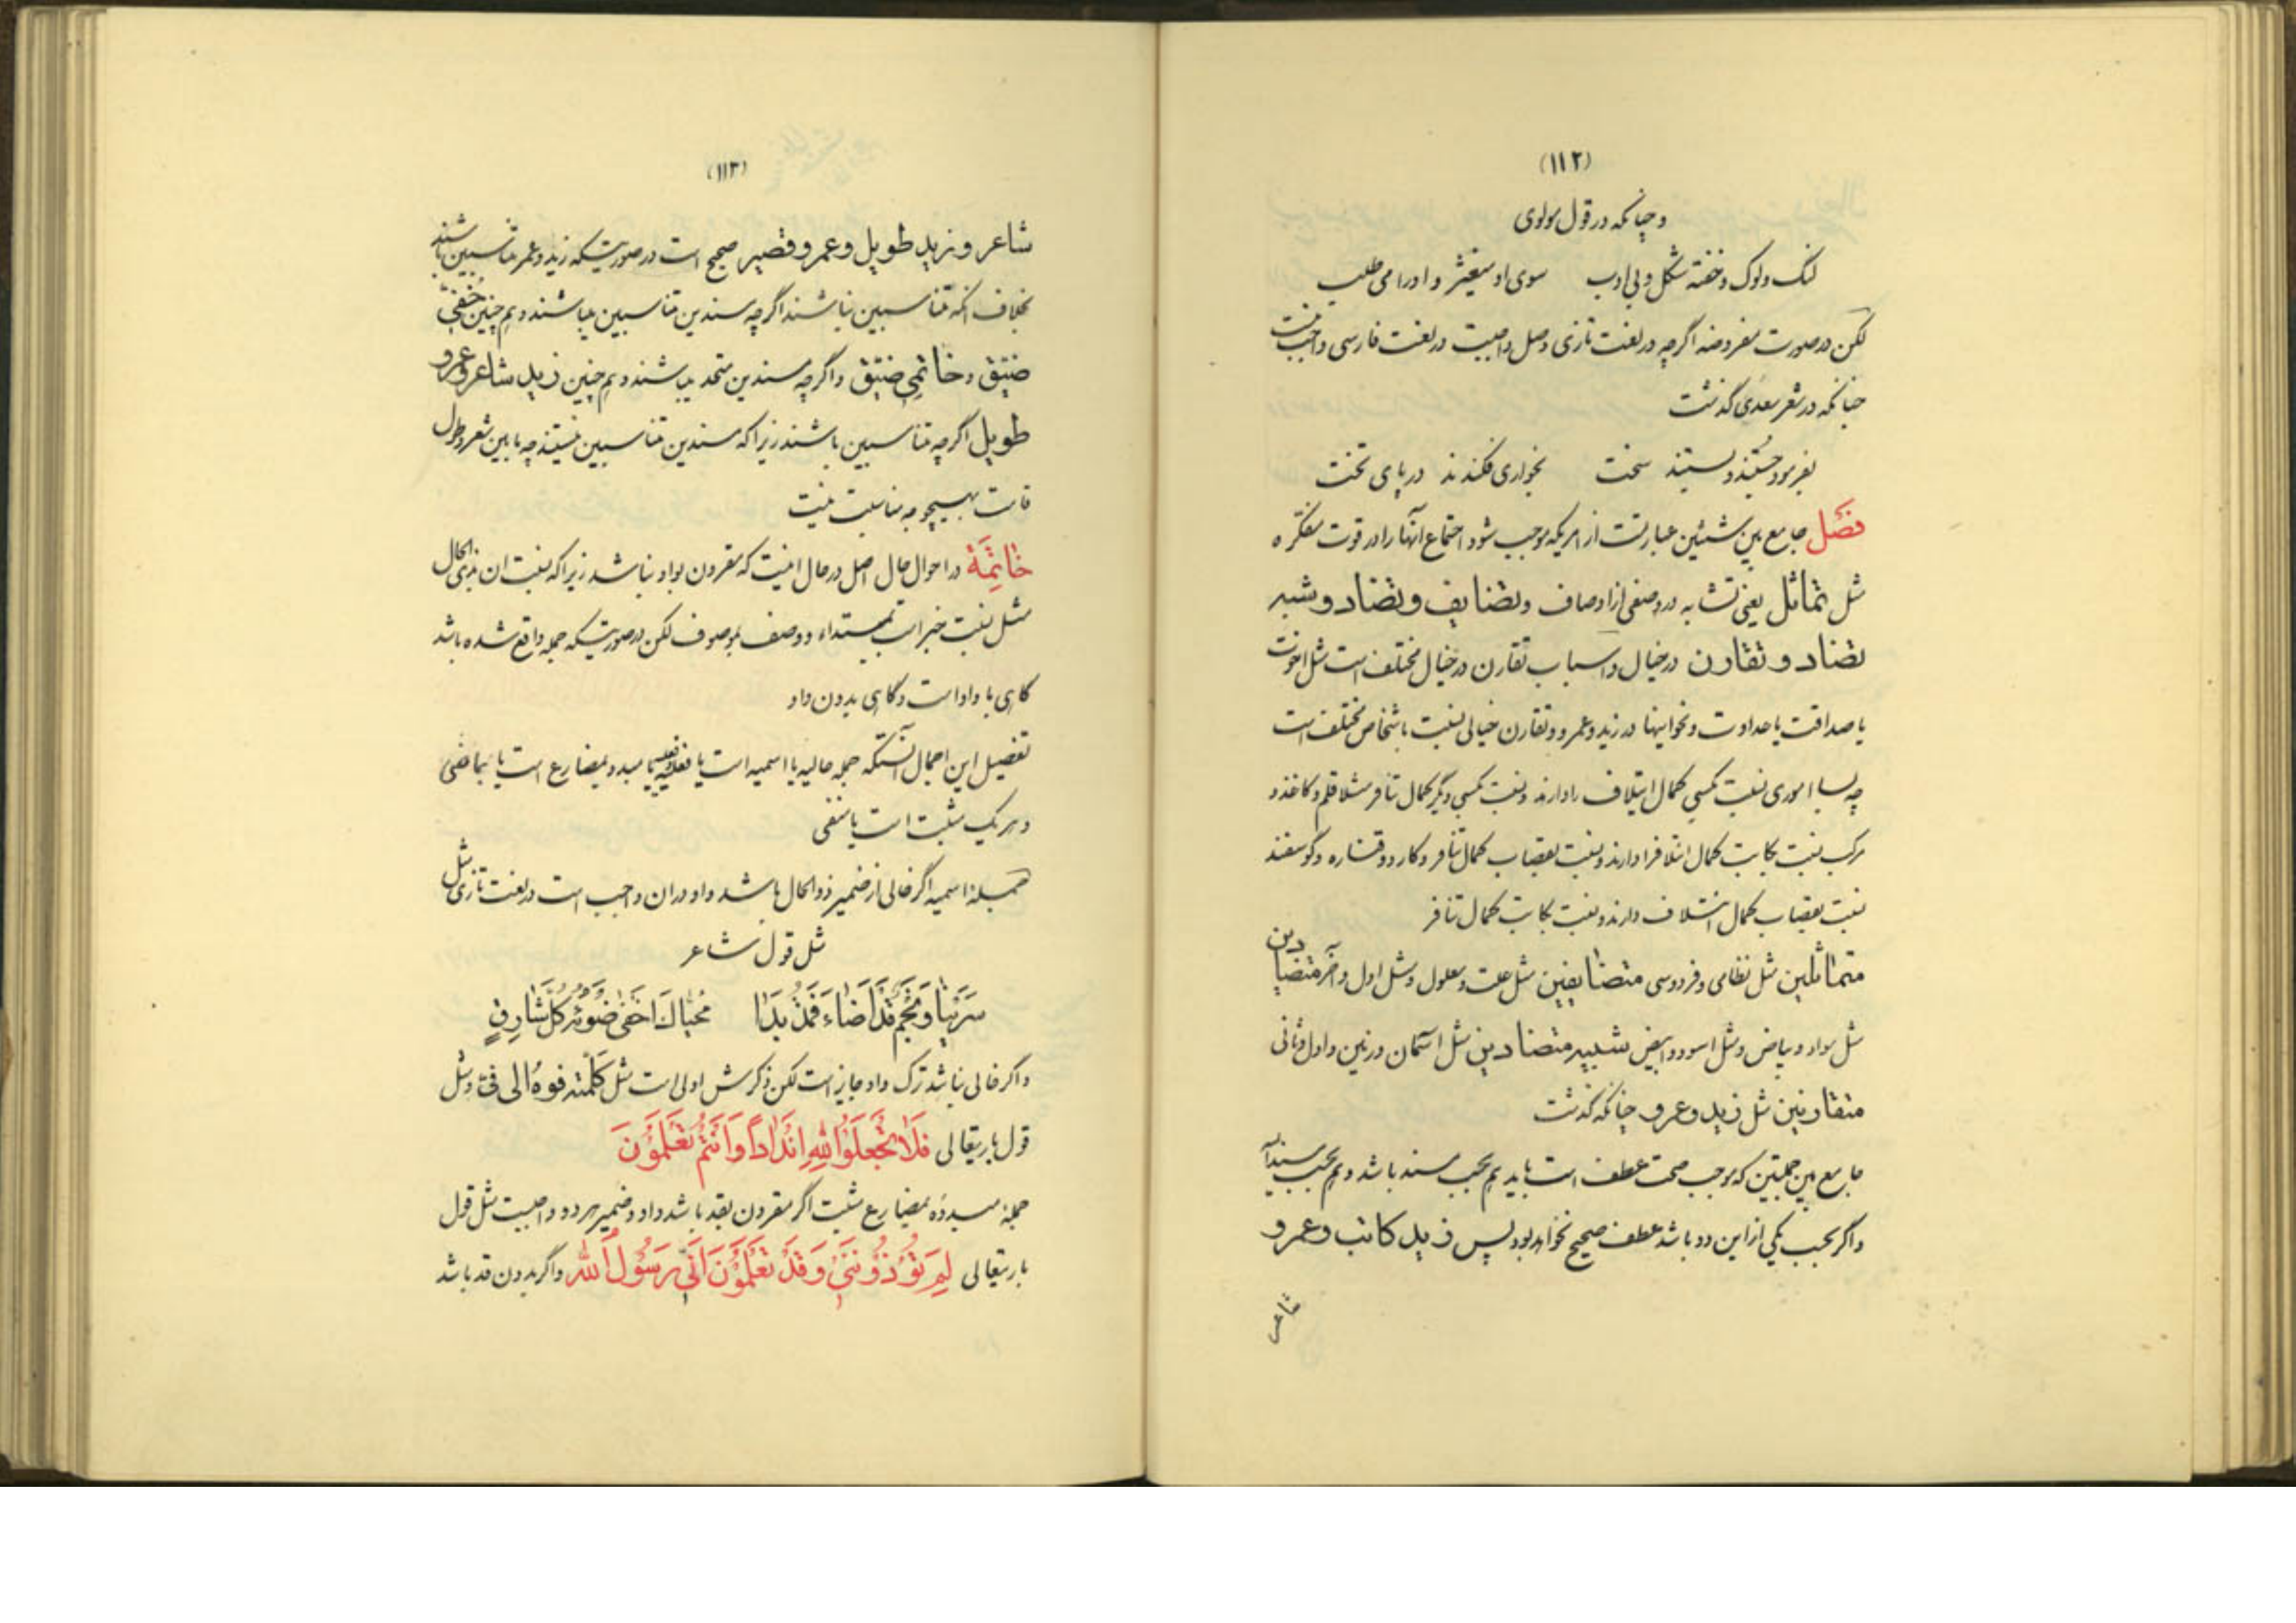 (۱۱۲)
و چنانکه در قول مولوی
لنک ولوک وخفته شکل و بی ادب سوی او میغیژ و او را می طلب
لکن در صورت مفروضه اگرچه در لغت تازی وصل واجبست در لغت فارسی واجب نیست
چنانکه در شعر سعدی گذشت
بفرمود جستند و بستند سخت بخواری فکندند در پای تخت
فصل جامع بین شیئین عبارتست از امریکه موجب شود اجتماع آنها را در قوت مفکره
مثل تماثل یعنی تشابه در وصفی از اوصاف وتضایف وتضاد وشبه
تضاد و تقارن در خیال و اسباب تقارن در خیال مختلف است مثل اخوت
یا صداقت یا عداوت و نحو اینها در زید وعمرو و تقارن خیالی نسبت باشخاص مختلف است
چه بسا اموری نسبت بکسی کمال ایتلاف را دارند و نسبت بکسی دیگر کمال تنافر مثلا قلم و کاغذ و
مرکب نسبت بکاتب کمال ائتلاف را دارند و نسبت بقصاب کمال تنافر و کارد و قناره و گوسفند
نسبت بقصاب کمال ائتلاف دارند و نسبت بکاتب کمال تنافر
متماثلین مثل نظامی و فردوسی متضایفین مثل علت و معلول و مثل اول و آخر متضادین
مثل سواد و بیاض و مثل اسود و ابیض شبیه متضادین مثل اسمان و زمین و اول و ثانی
متقارنین مثل زید و عمرو چنانکه گذشت
جامع بین جملتین که موجب صحت عطف است باید هم بحسب مسند باشد و هم بحسب مسندالیه
و اگر بحسب یکی از این دو باشد عطف صحیح نخواهد بود پس زید کاتب وعمرو
شاعر
(۱۱۳)
شاعر وزید طویل وعمرو قصیر صحیح است در صورتیکه زید و عمر متناسبین باشند
بخلاف انکه متناسبین نباشند اگرچه مسندین متناسبین باشند و هم چنین خفی
ضیق و خاتمی ضیق و اگرچه مسندین متحد باشند و هم چنین زید شاعر وعمرو
طویل اگرچه متناسبین باشند زیرا که مسندین متناسبین نیستند چه مابین شعر و طول
قامت بهیچوجه مناسبت نیست
خاتمة در احوال حال اصل در حال انیست که مقرون بواو نباشد زیرا که نسبت ان بذی الحال
مثل نسبت خبر است بمبتداء و وصف بموصوف لکن در صورتیکه جمله واقع شده باشد
گاهی با واو است و گاهی بدون واو
تفصیل این اجمال آنستکه جمله حالیه یا اسمیه است یا فعلیه یا مبدو بمضارع است یا بماضی
و هر یک مثبت است یا منفی
جملهٔ اسمیه اگر خالی از ضمیر ذوالحال باشد واو در ان واجب است در لغت تازی مثل
مثل قول شاعر
سَرَیْنا وَنَجْمٌ قَدْ اَضاءَ فَمُذْ بَدا مُحَیّاكَ اَخْفىٰ ضَوْئُهُ کُلَّ شارِقٍ
و اگر خالی نباشد ترک واو جایز است لکن ذکرش اولی است مثل کلمته فوه الی فی و مثل
قول باریتعالی فَلا تَجْعَلُوا لِلّٰهِ اَنْداداً وَاَنْتُمْ تَعْلَمُونَ
جملهٔ مبدوه بمضارع مثبت اگر مقرون بقد باشد واو و ضمیر هر دو واجبست مثل قول
باریتعالی لِمَ تُؤْذُونَنی وَقَدْ تَعْلَمُونَ اَنّی رَسُولُ اللهِ و اگر بدون قد باشد